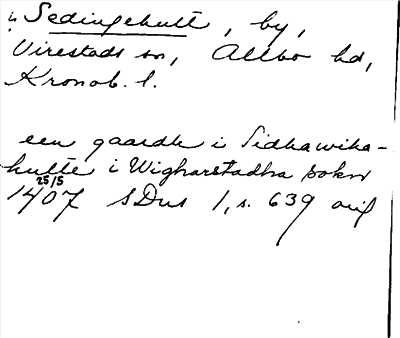 i Sedingehult, by,
Virestads sn, Allbo hd,
Kronob. l.
een gaardh i Sidhawiha-
hulte i Wigharstadha sokn
1407 25/5 SDns 1, s. 639 orig